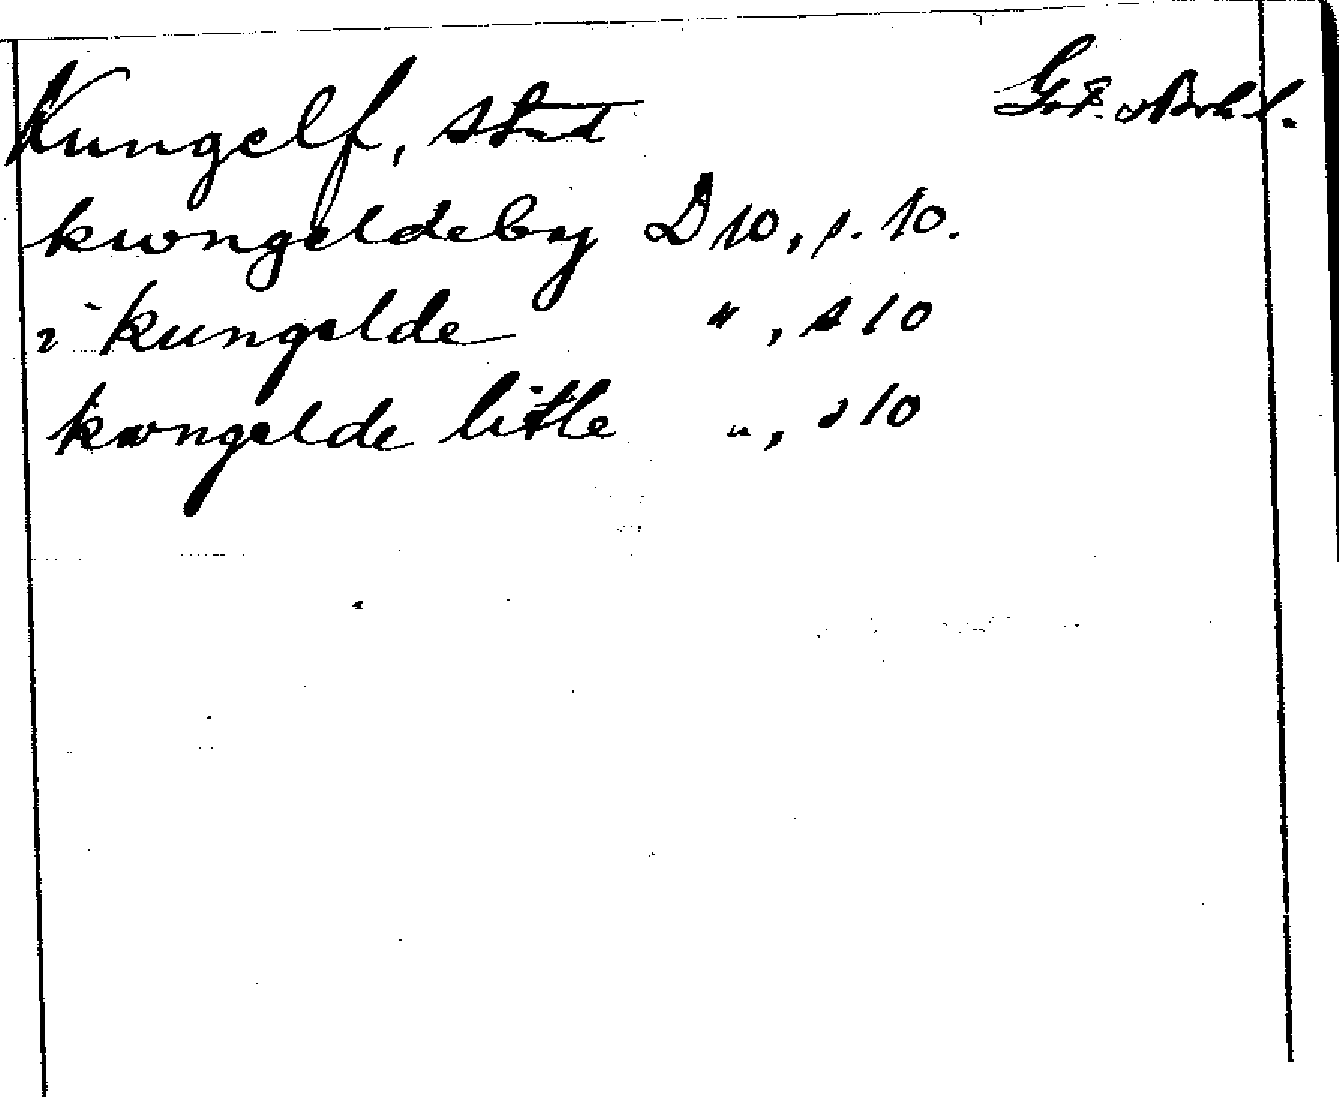 Kungelf, stad Göt. o Boh. l.
kwngeldeby D 10, s. 10.
i kungelde ", s 10
kwngelde litle ", s 10